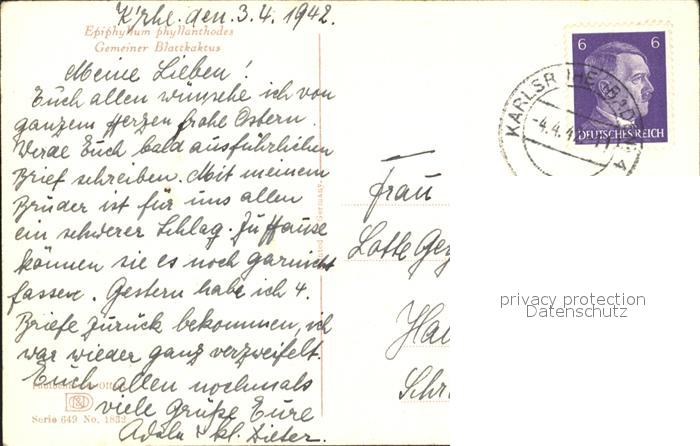 K'rhe. den. 3.4. 1942.
Epiphyllum phyllanthodes
Gemeiner Blattkaktus
Meine Lieben!
Euch allen wünsche ich von
ganzem Herzen frohe Ostern.
Werde Euch bald ausführlichen
Brief schreiben. Mit meinem
Bruder ist für uns allen
ein schwerer Schlag. Zu Hause
können sie es noch garnicht
fassen. Gestern habe ich 4.
Briefe zurück bekommen, ich
war wieder ganz verzweifelt.
Euch allen nochmals
viele Grüße Eure
Adele u. kl. Dieter.
Serie 649 No. 1832
in Germany
6 6
DEUTSCHES REICH
KARLSRUHE (BADEN)
-4.4.4
Frau
Lotte Ge
Ha
Schr
privacy protection
Datenschutz